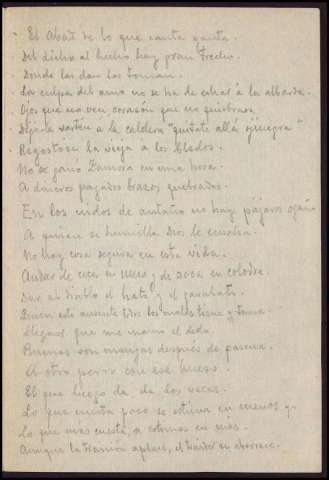 El Abad de lo que canta yanta.
Del dicho al hecho hay gran trecho.
Donde las dan las toman.
La culpa del asno no se ha de echar á la albarda.
Ojos que no ven corazón que no quiebra.
Dijo la sartén a la caldera "quítate allá ojinegra"
Regostose la vieja a los bledos.
No se ganó Zamora en una hora.
A dineros pagados brazos quebrados.
En los nidos de antaño no hay pájaros ogaño
A quien se humilla Dios le ensalza.
No hay cosa segura en esta vida.
Andar de ceca en meca y de zoca en colodra.
Dar al diablo el hato y el garabato.
Quien está ausente todos los males tiene y teme.
Llegaos que me mamo el dedo.
Buenas son mangas después de pascua.
A otro perro con ese hueso.
El que luego da, da dos veces.
Lo que cuesta poco se estima en menos y
lo que más cuesta, se estima en más.
Aunque la traición aplace, el traidor se aborrece.